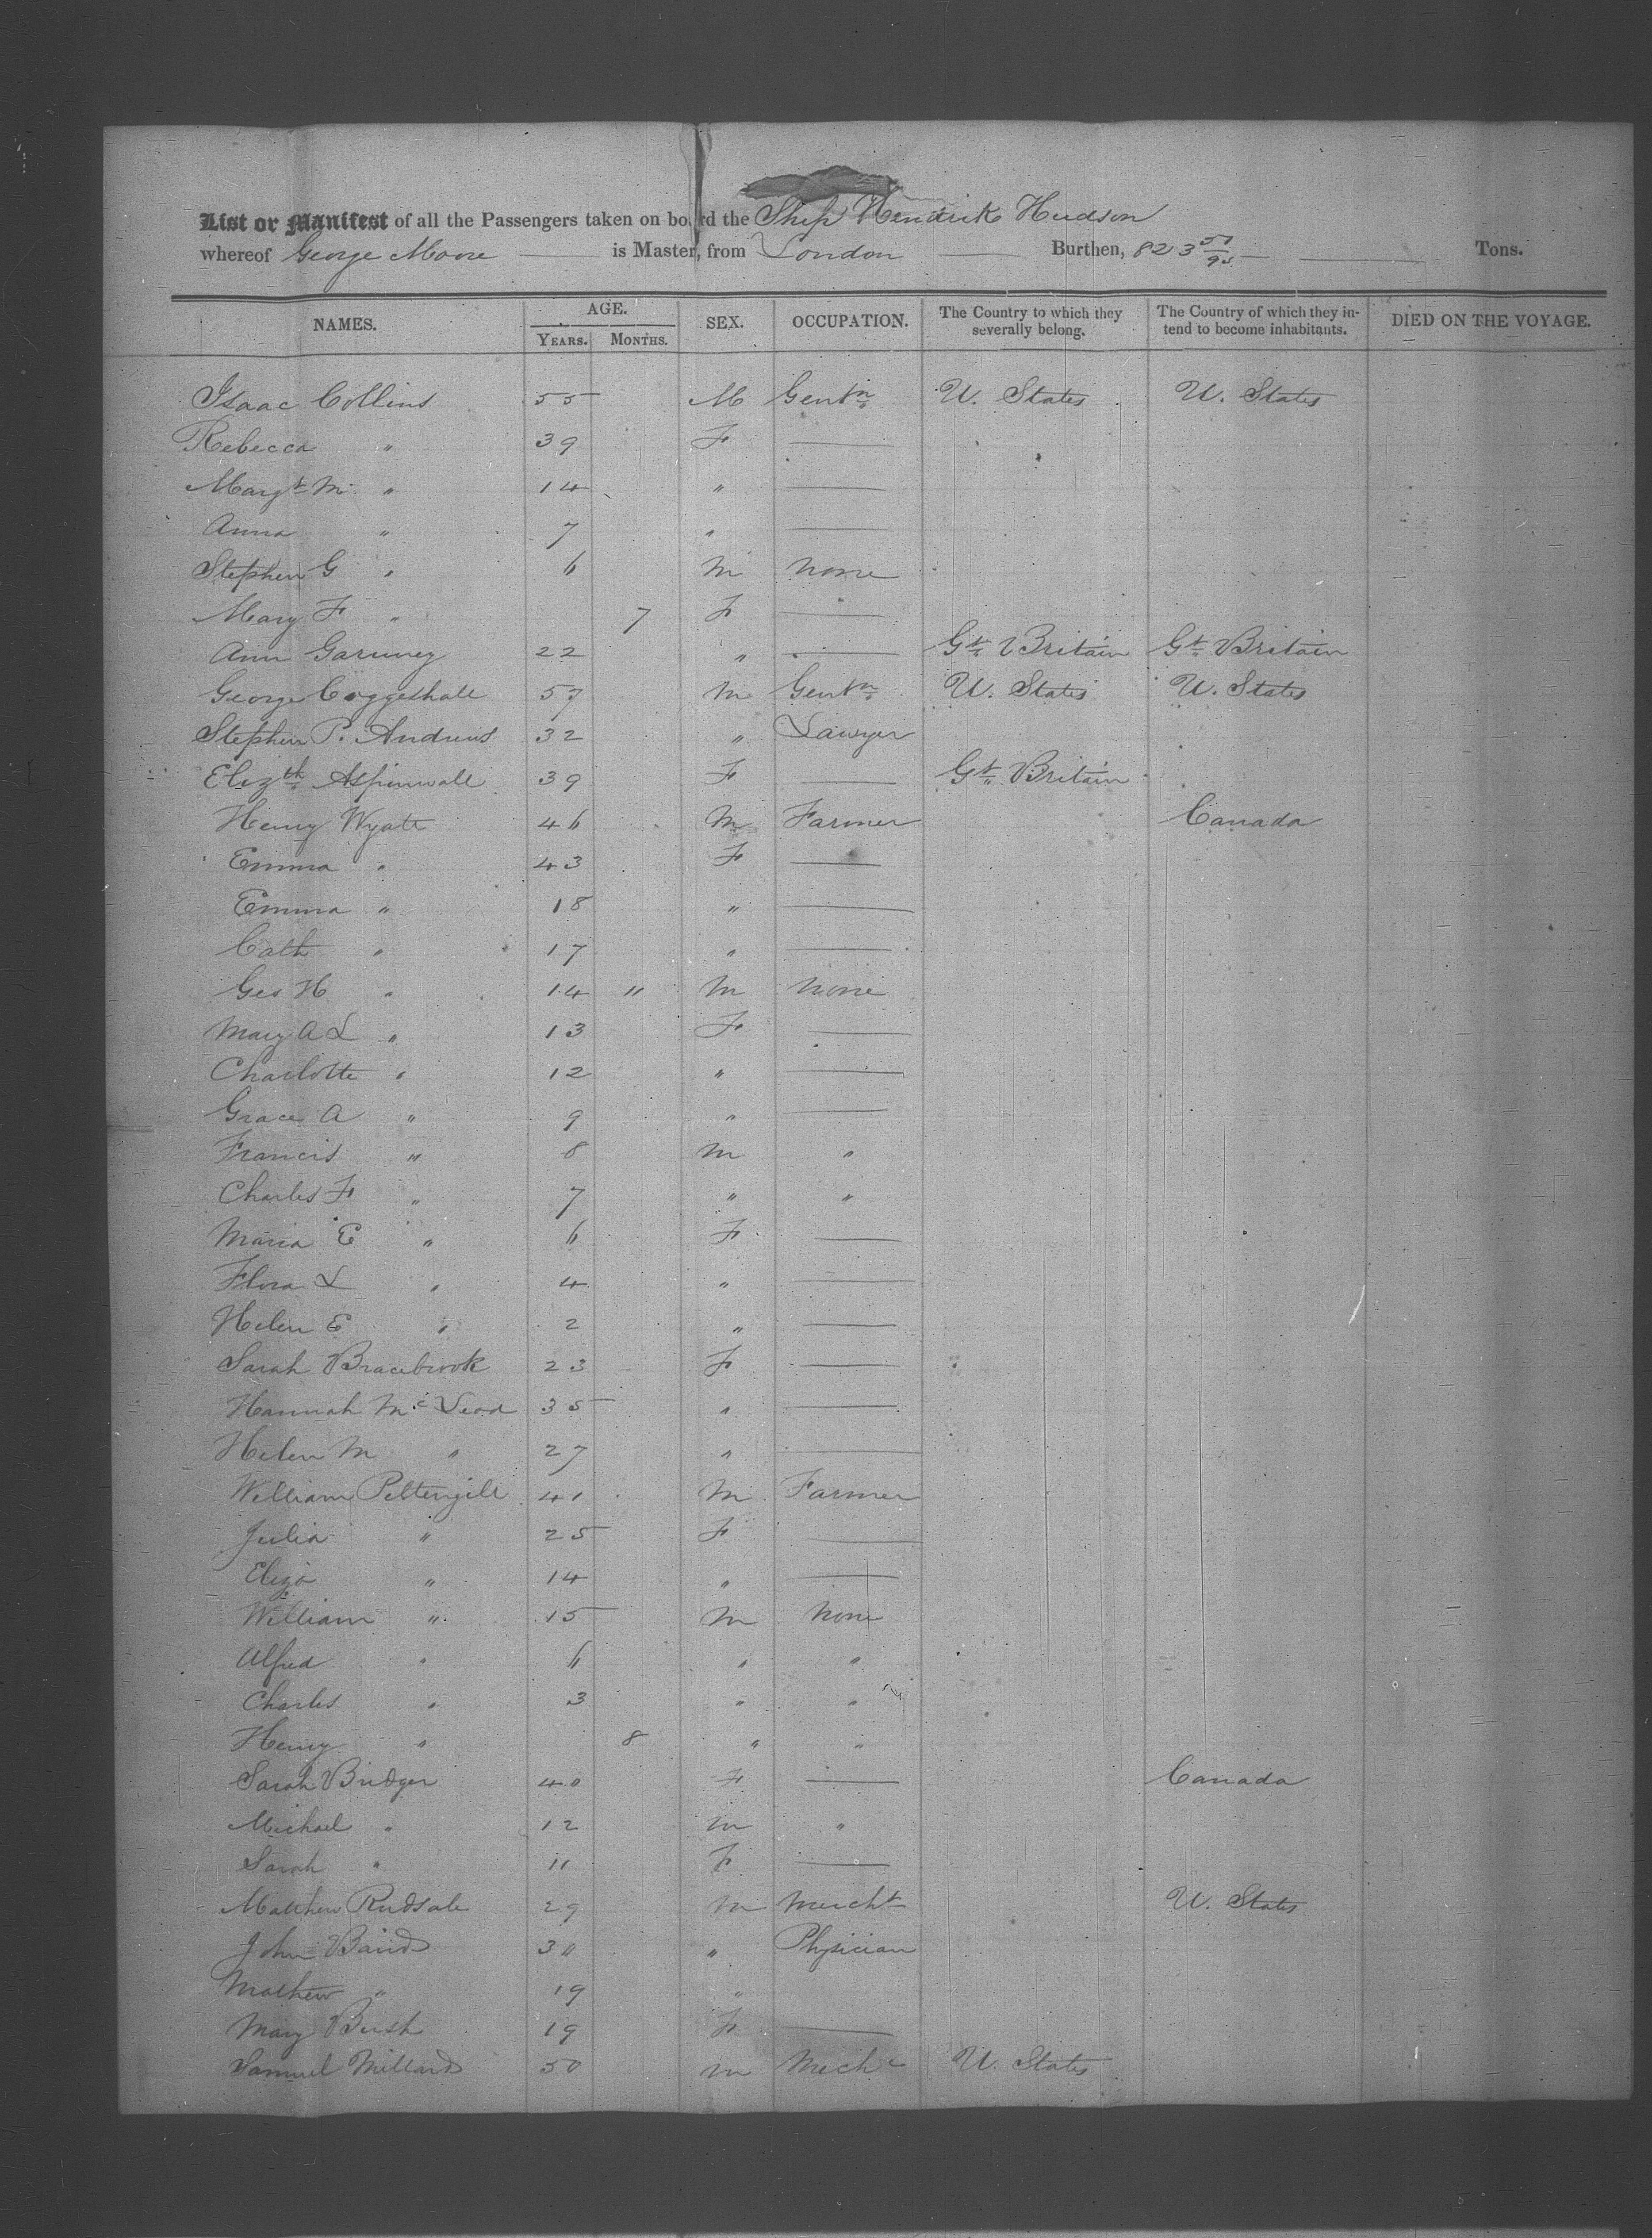 List or Manifest of all the Passengers taken on board the Ship Hendrick Hudson
whereof George Moore is Master, from London Burthen, 823 51/95 Tons.
NAMES. AGE. YEARS. MONTHS. SEX. OCCUPATION. The Country to which they severally belong. The Country of which they intend to become inhabitants. DIED ON THE VOYAGE.
Isaac Collins 55 M Gentn U. States U. States
Rebecca " 39 F —
Margt M " 14 " —
Anna " 7 " —
Stephen G " 6 M None
Mary F " 7 F —
Ann 22 " — Gt Britain Gt Britain
George Coggeshall 57 M Gentn U. States U. States
Stephen P. Andrews 32 " Lawyer
Elizth Aspinwall 39 F — Gt Britain
Henry Wyatt 46 M Farmer Canada
Emma " 43 F —
Emma " 18 " —
Cath " 17 " —
Geo H " 14 " M None
Mary A L " 13 F —
Charlotte " 12 " —
Grace A " 9 " —
Francis " 8 M "
Charles F " 7 " "
Maria E " 6 F —
Flora L " 4 " —
Helen E " 2 " —
Sarah Bracebrook 23 F —
Hannah McLeod 35 " —
Helen M " 27 " —
William Pettengill 41 M Farmer
Julia " 25 F —
Eliza " 14 " —
William " 15 M None
Alfred " 6 " "
Charles " 3 " "
Henry " 8 " "
Sarah Bridger 40 F — Canada
Michael " 12 M "
Sarah " 11 F —
Matthew Rudsale 29 M Mercht U. States
John Baird 30 " Physician
Mathew " 19 "
Mary Bush 19 F —
Samuel Millard 50 M Mechc U. States